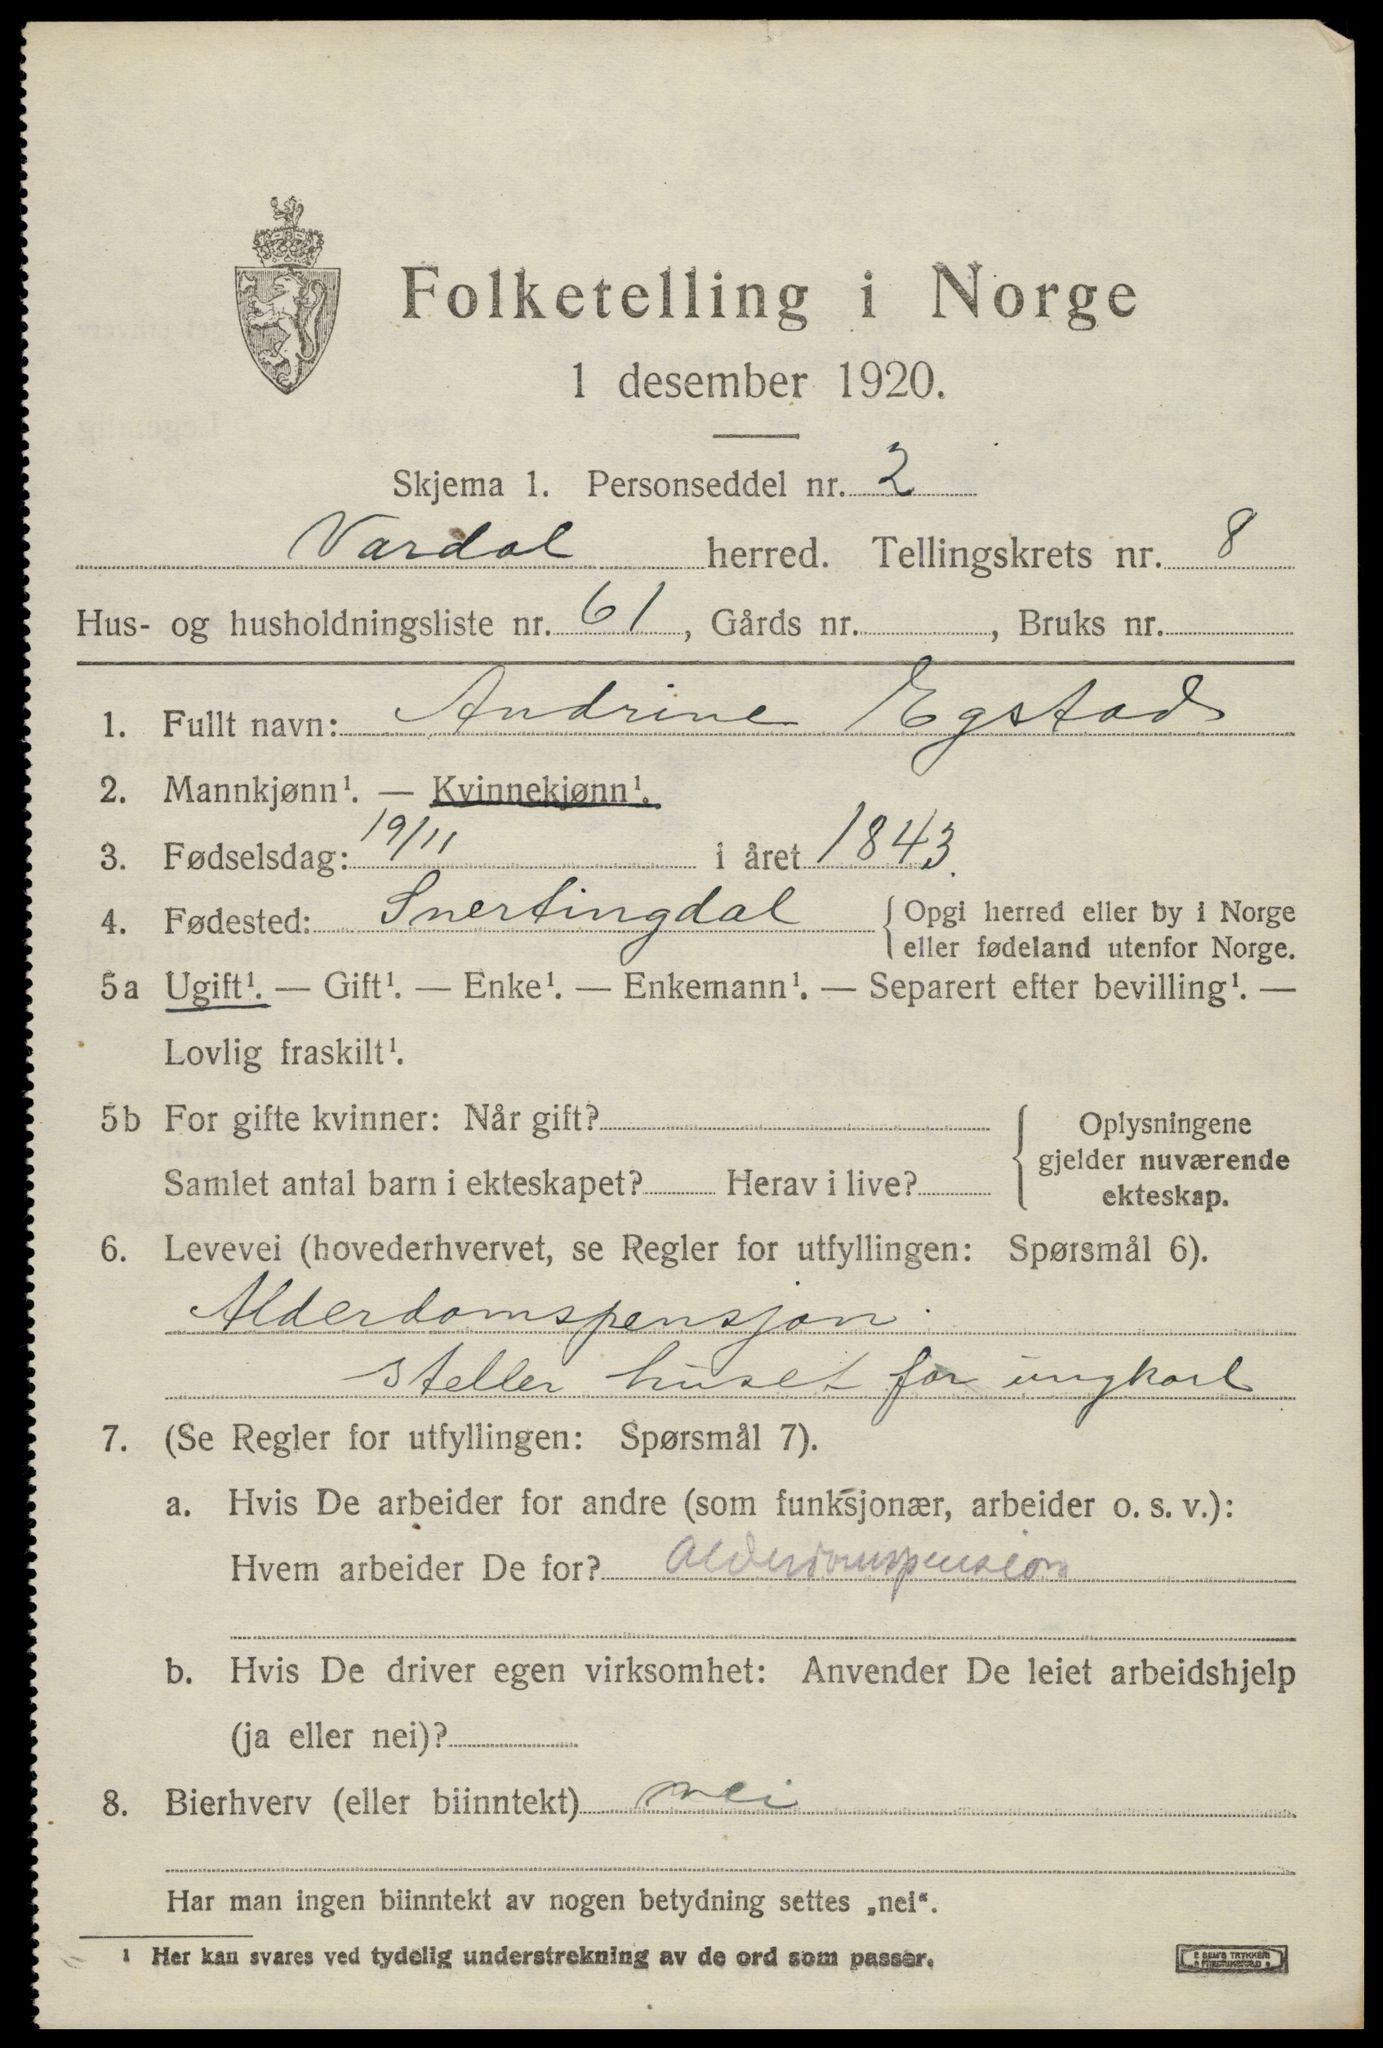 Folketelling i Norge
1 desember 1920.
Skjema 1. Personseddel nr. 2
Vardal herred. Tellingskrets nr. 8
Hus- og husholdningsliste nr. 61, Gårds nr. , Bruks nr.
1. Fullt navn: Andrine Egstad
2. Mannkjønn¹. — Kvinnekjønn¹.
3. Fødselsdag: 19/11 i året 1843.
4. Fødested: Snertingdal { Opgi herred eller by i Norge
eller fødeland utenfor Norge.
5a Ugift¹. — Gift¹. — Enke¹. — Enkemann¹. — Separert efter bevilling¹. —
Lovlig fraskilt¹.
5b For gifte kvinner: Når gift?
Samlet antal barn i ekteskapet? Herav i live?
{ Oplysningene
gjelder nuværende
ekteskap.
6. Levevei (hovederhvervet, se Regler for utfyllingen: Spørsmål 6).
Alderdomspensjon
steller huset for ungkarl
7. (Se Regler for utfyllingen: Spørsmål 7).
a. Hvis De arbeider for andre (som funksjonær, arbeider o. s. v.):
Hvem arbeider De for? Alderdomspension
b. Hvis De driver egen virksomhet: Anvender De leiet arbeidshjelp
(ja eller nei)?
8. Bierhverv (eller biinntekt) nei
Har man ingen biinntekt av nogen betydning settes „nei“.
¹ Her kan svares ved tydelig understrekning av de ord som passer.